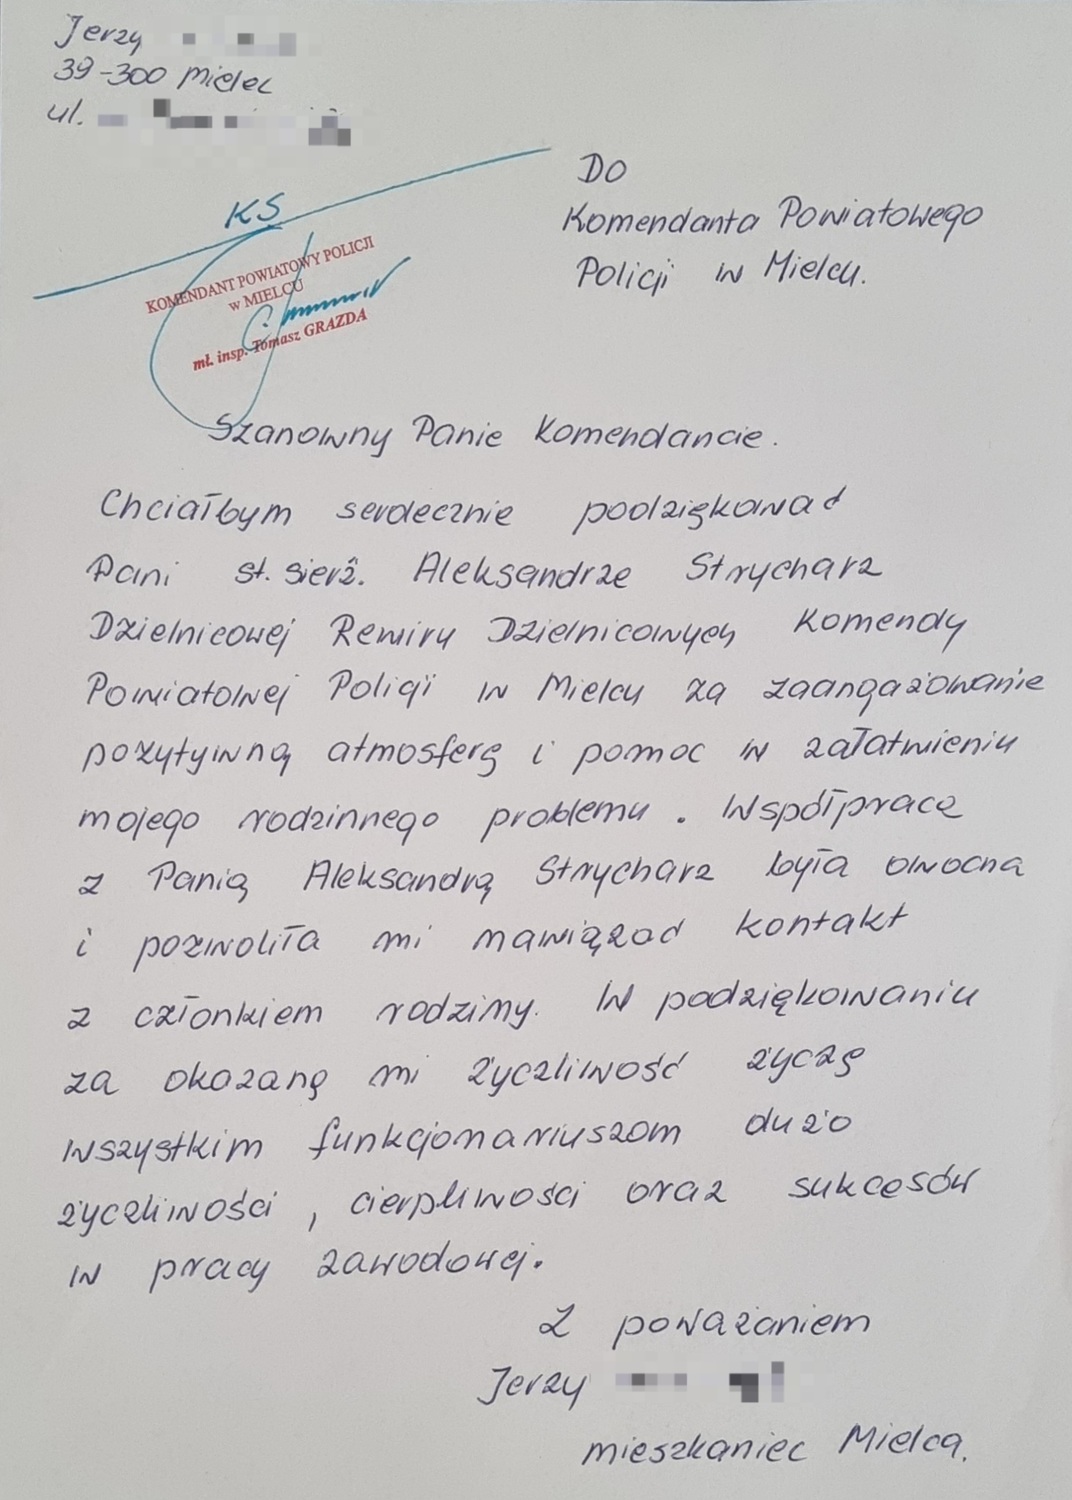 Jerzy
39-300 Mielec
ul.
Do
Komendanta Powiatowego
Policji w Mielcu.
KS
KOMENDANT POWIATOWY POLICJI
w MIELCU
mł. insp. Tomasz GRAZDA
Szanowny Panie Komendancie.
Chciałbym serdecznie podziękować
Pani st. sierż. Aleksandrze Strycharz
Dzielnicowej Rewiru Dzielnicowych Komendy
Powiatowej Policji w Mielcu za zaangażowanie
pozytywną atmosferę i pomoc w załatwieniu
mojego rodzinnego problemu. Współpraca
z Panią Aleksandrą Strycharz była owocna
i pozwoliła mi nawiązać kontakt
z członkiem rodziny. W podziękowaniu
za okazaną mi życzliwość życzę
wszystkim funkcjonariuszom dużo
życzliwości, cierpliwości oraz sukcesów
w pracy zawodowej.
Z poważaniem
Jerzy
mieszkaniec Mielca.